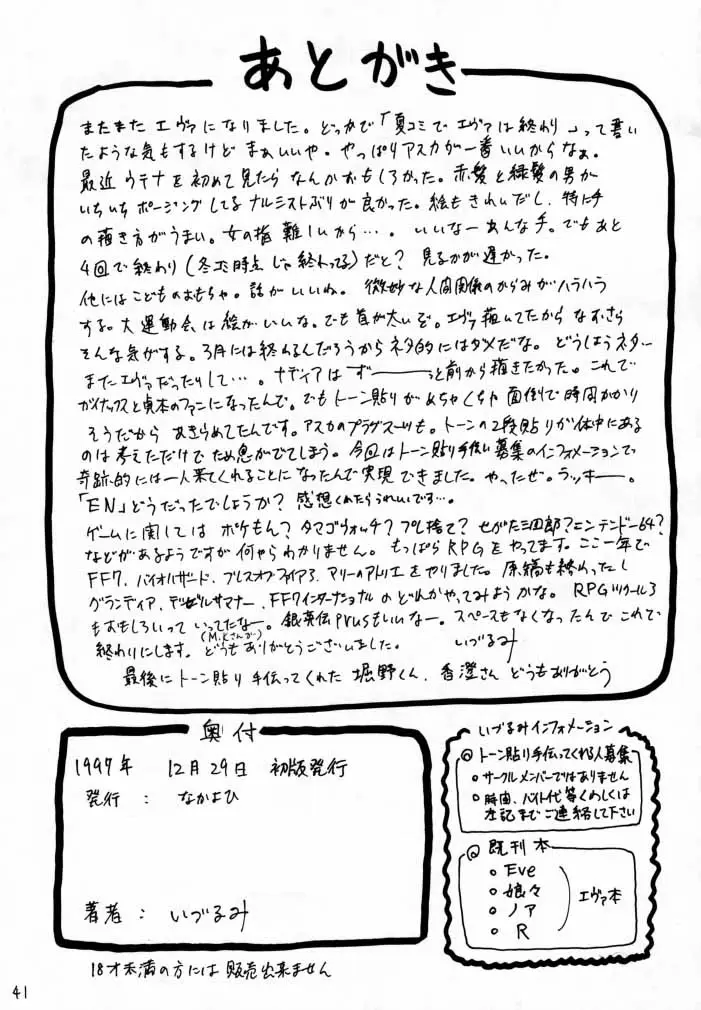 あとがき
またまた エヴァになりました。どっかで「夏コミで エヴァは終わり」って書い
たような気もするけど まぁいいや。やっぱりアスカが一番いいからなぁ。
最近 ウテナを初めて見たら なんかおもしろかった。赤髪と緑髪の男が
いちいち ポージングしてる ナルシストぶりが良かった。絵もきれいだし、特に手
の描き方がうまい。女の指 難しいから…。いいなーあんな手。でもあと
4回で終わり(冬コミ時点じゃ終わってる)だと? 見るのが遅かった。
他にはこどものおもちゃ。話がいいね。 微妙な人間関係のからみがハラハラ
する。大運動会は絵がいいな。でも首が太いぞ。エヴァ描いてたからなおさら
そんな気がする。3月には終わるんだろうからネタ的にはダメだな。どうしようネター
またエヴァだったりして…。ナディアは ずーーーっと前から描きたかった。これで
ガイナックスと貞本のファンになったんで。でもトーン貼りがめちゃくちゃ面倒で時間かかり
そうだから あきらめてたんです。アスカのプラグスーツも。トーンの2段貼りが体中にある
のは考えただけで ため息がでてしまう。今回はトーン貼り手伝い募集のインフォメーションで
奇跡的には一人来てくれることになったんで実現できました。やったぜ。ラッキー。
「EN」どうだったでしょうか? 感想くれたらうれしいです…。
ゲームに関しては ポケもん? タマゴウォッチ? プレ捨て? せがた三四郎? ニンテンドー64?
などがあるようですが 何やらわかりません。もっぱらRPGをやってます。ここ一年で
FF7、バイオハザード、ブレスオブファイア3、マリーのアトリエをやりました。原稿も終わったし
グランディア、デビルサマナー、FF7インターナショナルのどれかやってみようかな。RPGツクール3
もおもしろいって いってたなー。銀英伝Prusもいいなー。スペースもなくなったんで これで
(M.Kさんが)
終わりにします。どうもありがとうございました。 いづるみ
最後にトーン貼り手伝ってくれた 堀野くん、香澄さん どうもありがとう
奥付
1997年 12月29日 初版発行
発行 : なかよひ
著者 : いづるみ
18才未満の方には 販売出来ません
いづるみインフォメーション
◎トーン貼り手伝ってくれる人募集
○サークルメンバーではありません
○時間、バイト代等くわしくは
左記までご連絡して下さい
◎既刊本
○Eve
○娘々
○ノア
○R
エヴァ本
41